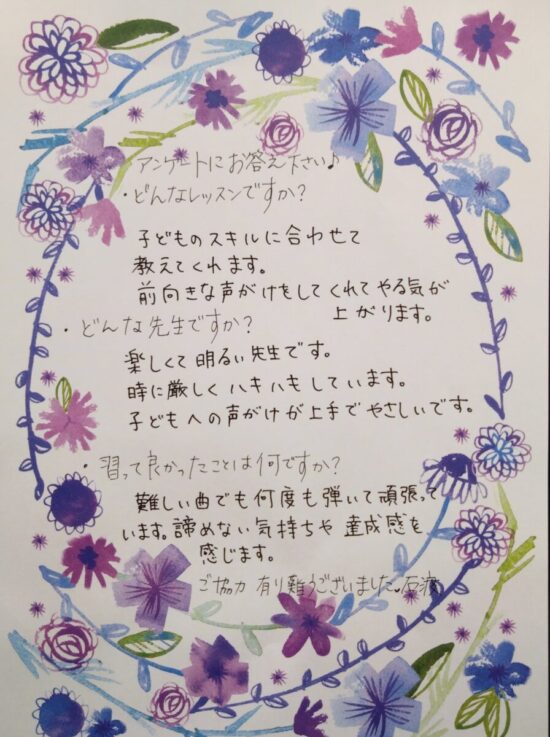 アンケートにお答え下さい♪
・どんなレッスンですか?
子どものスキルに合わせて
教えてくれます。
前向きな声がけをしてくれてやる気が
上がります。
・どんな先生ですか?
楽しくて明るい先生です。
時に厳しくハキハキしています。
子どもへの声がけが上手でやさしいです。
・習って良かったことは何ですか?
難しい曲でも何度も弾いて頑張って
います。諦めない気持ちや達成感を
感じます。
ご協力有り難うございました。石濱